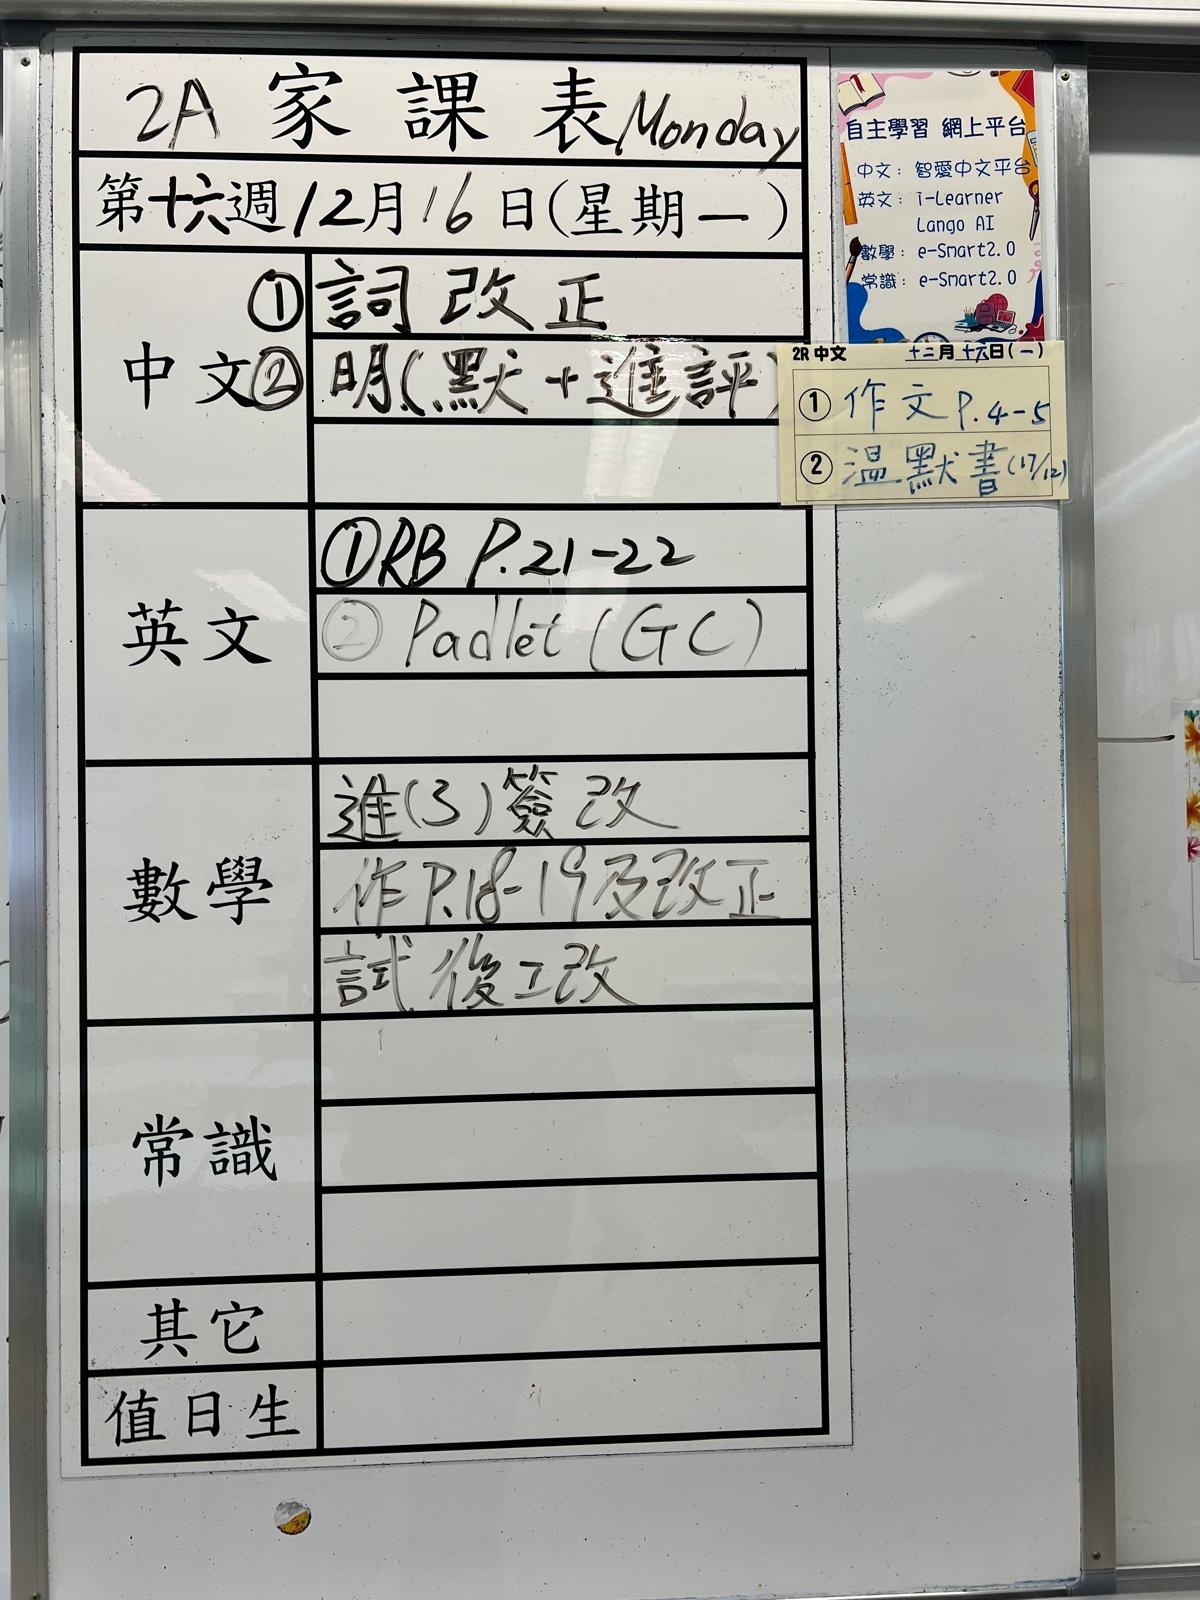 2A 家課表 Monday
第十六週 12月16日(星期一)
中文
① 詞改正
② 明(默+進評)
英文
① RB P.21-22
② Padlet (GC)
數學
進(3)簽改
作P.18-19及改正
試後工改
常識
其它
值日生
自主學習 網上平台
中文：智愛中文平台
英文：i-Learner
Lango AI
數學：e-Smart2.0
常識：e-Smart2.0
2R 中文 十二月十六日(一)
① 作文 P.4-5
② 溫默書(17/12)